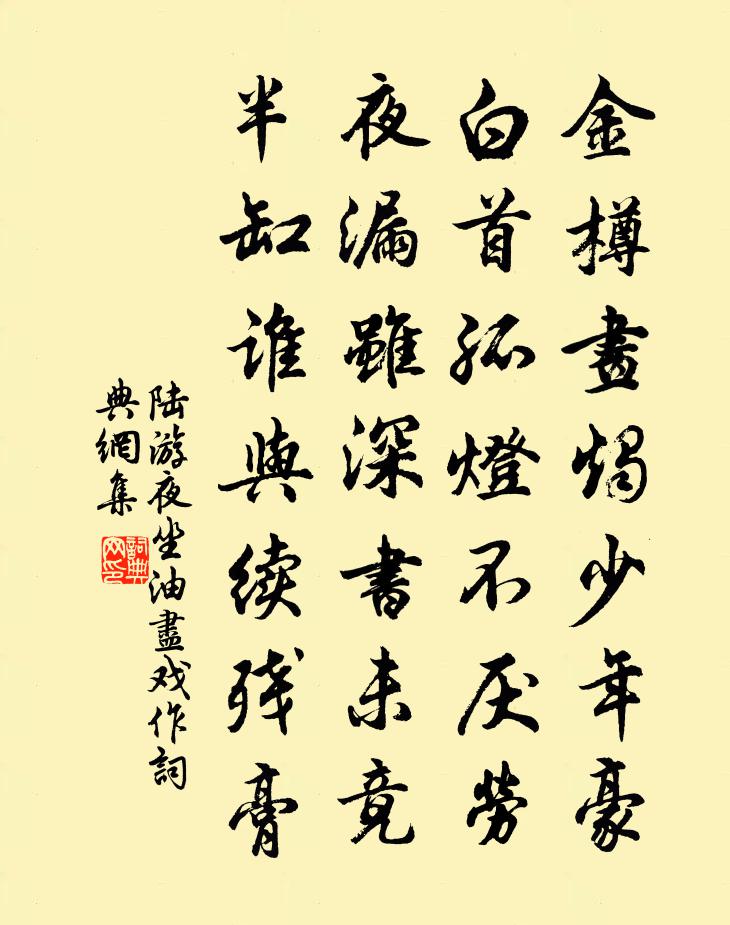 金樽畫燭少年豪
白首孤燈不厌勞
夜漏雖深書未竟
半缸誰與续残膏
陆游夜坐油盡戏作詞
典網集
詞典
网印